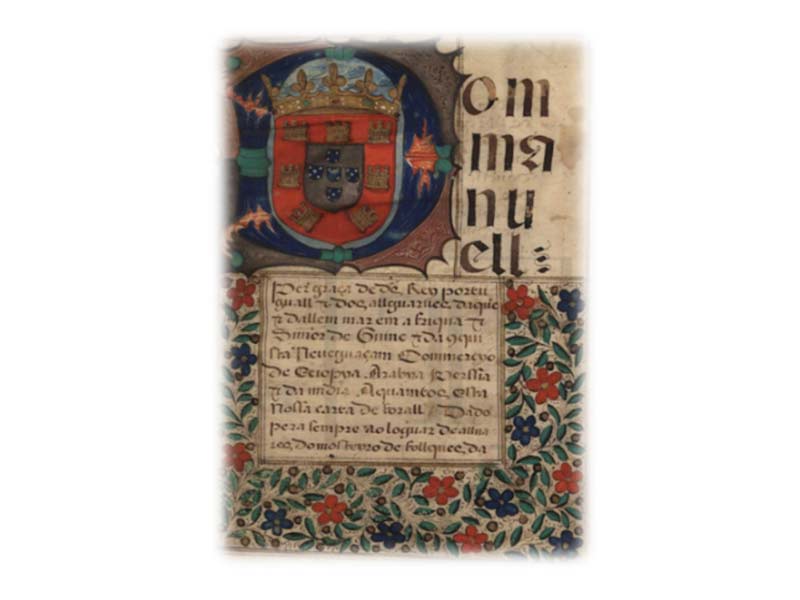 Dom
ma
nu
ell
Per graça de ds Rey portu
guall & dos allguarues daque
& dallem mar em afriqua &
Senñor de Guine & da 9qui
sta Neueguaçam Commerçyo
de Etiopya Arabya Persia
& da india Aquamtos esta
nossa carta de forall Dado
pera sempre ao loguar de allua
res, do mosteyro de follques, da